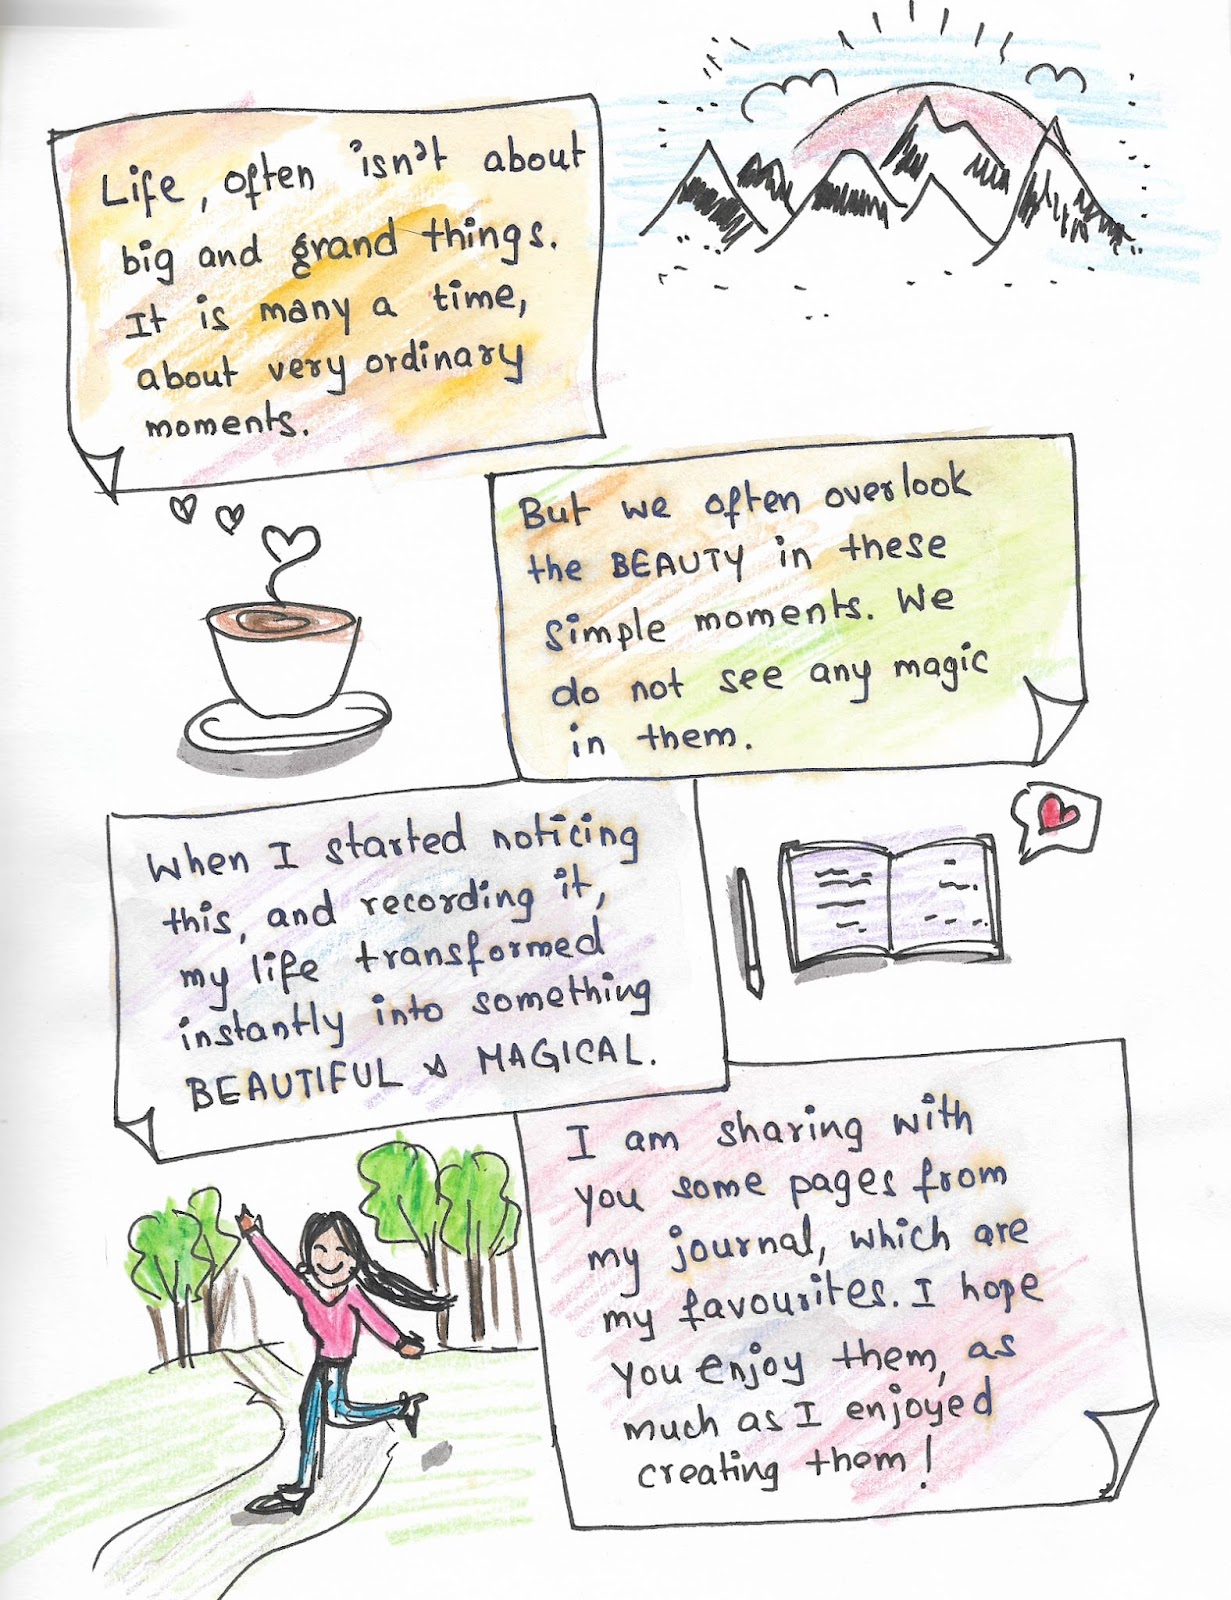 Life, often isn't about
big and grand things.
It is many a time,
about very ordinary
moments.
But we often overlook
the BEAUTY in these
simple moments. We
do not see any magic
in them.
When I started noticing
this, and recording it,
my life transformed
instantly into something
BEAUTIFUL & MAGICAL.
I am sharing with
you some pages from
my journal, which are
my favourites. I hope
you enjoy them, as
much as I enjoyed
creating them!